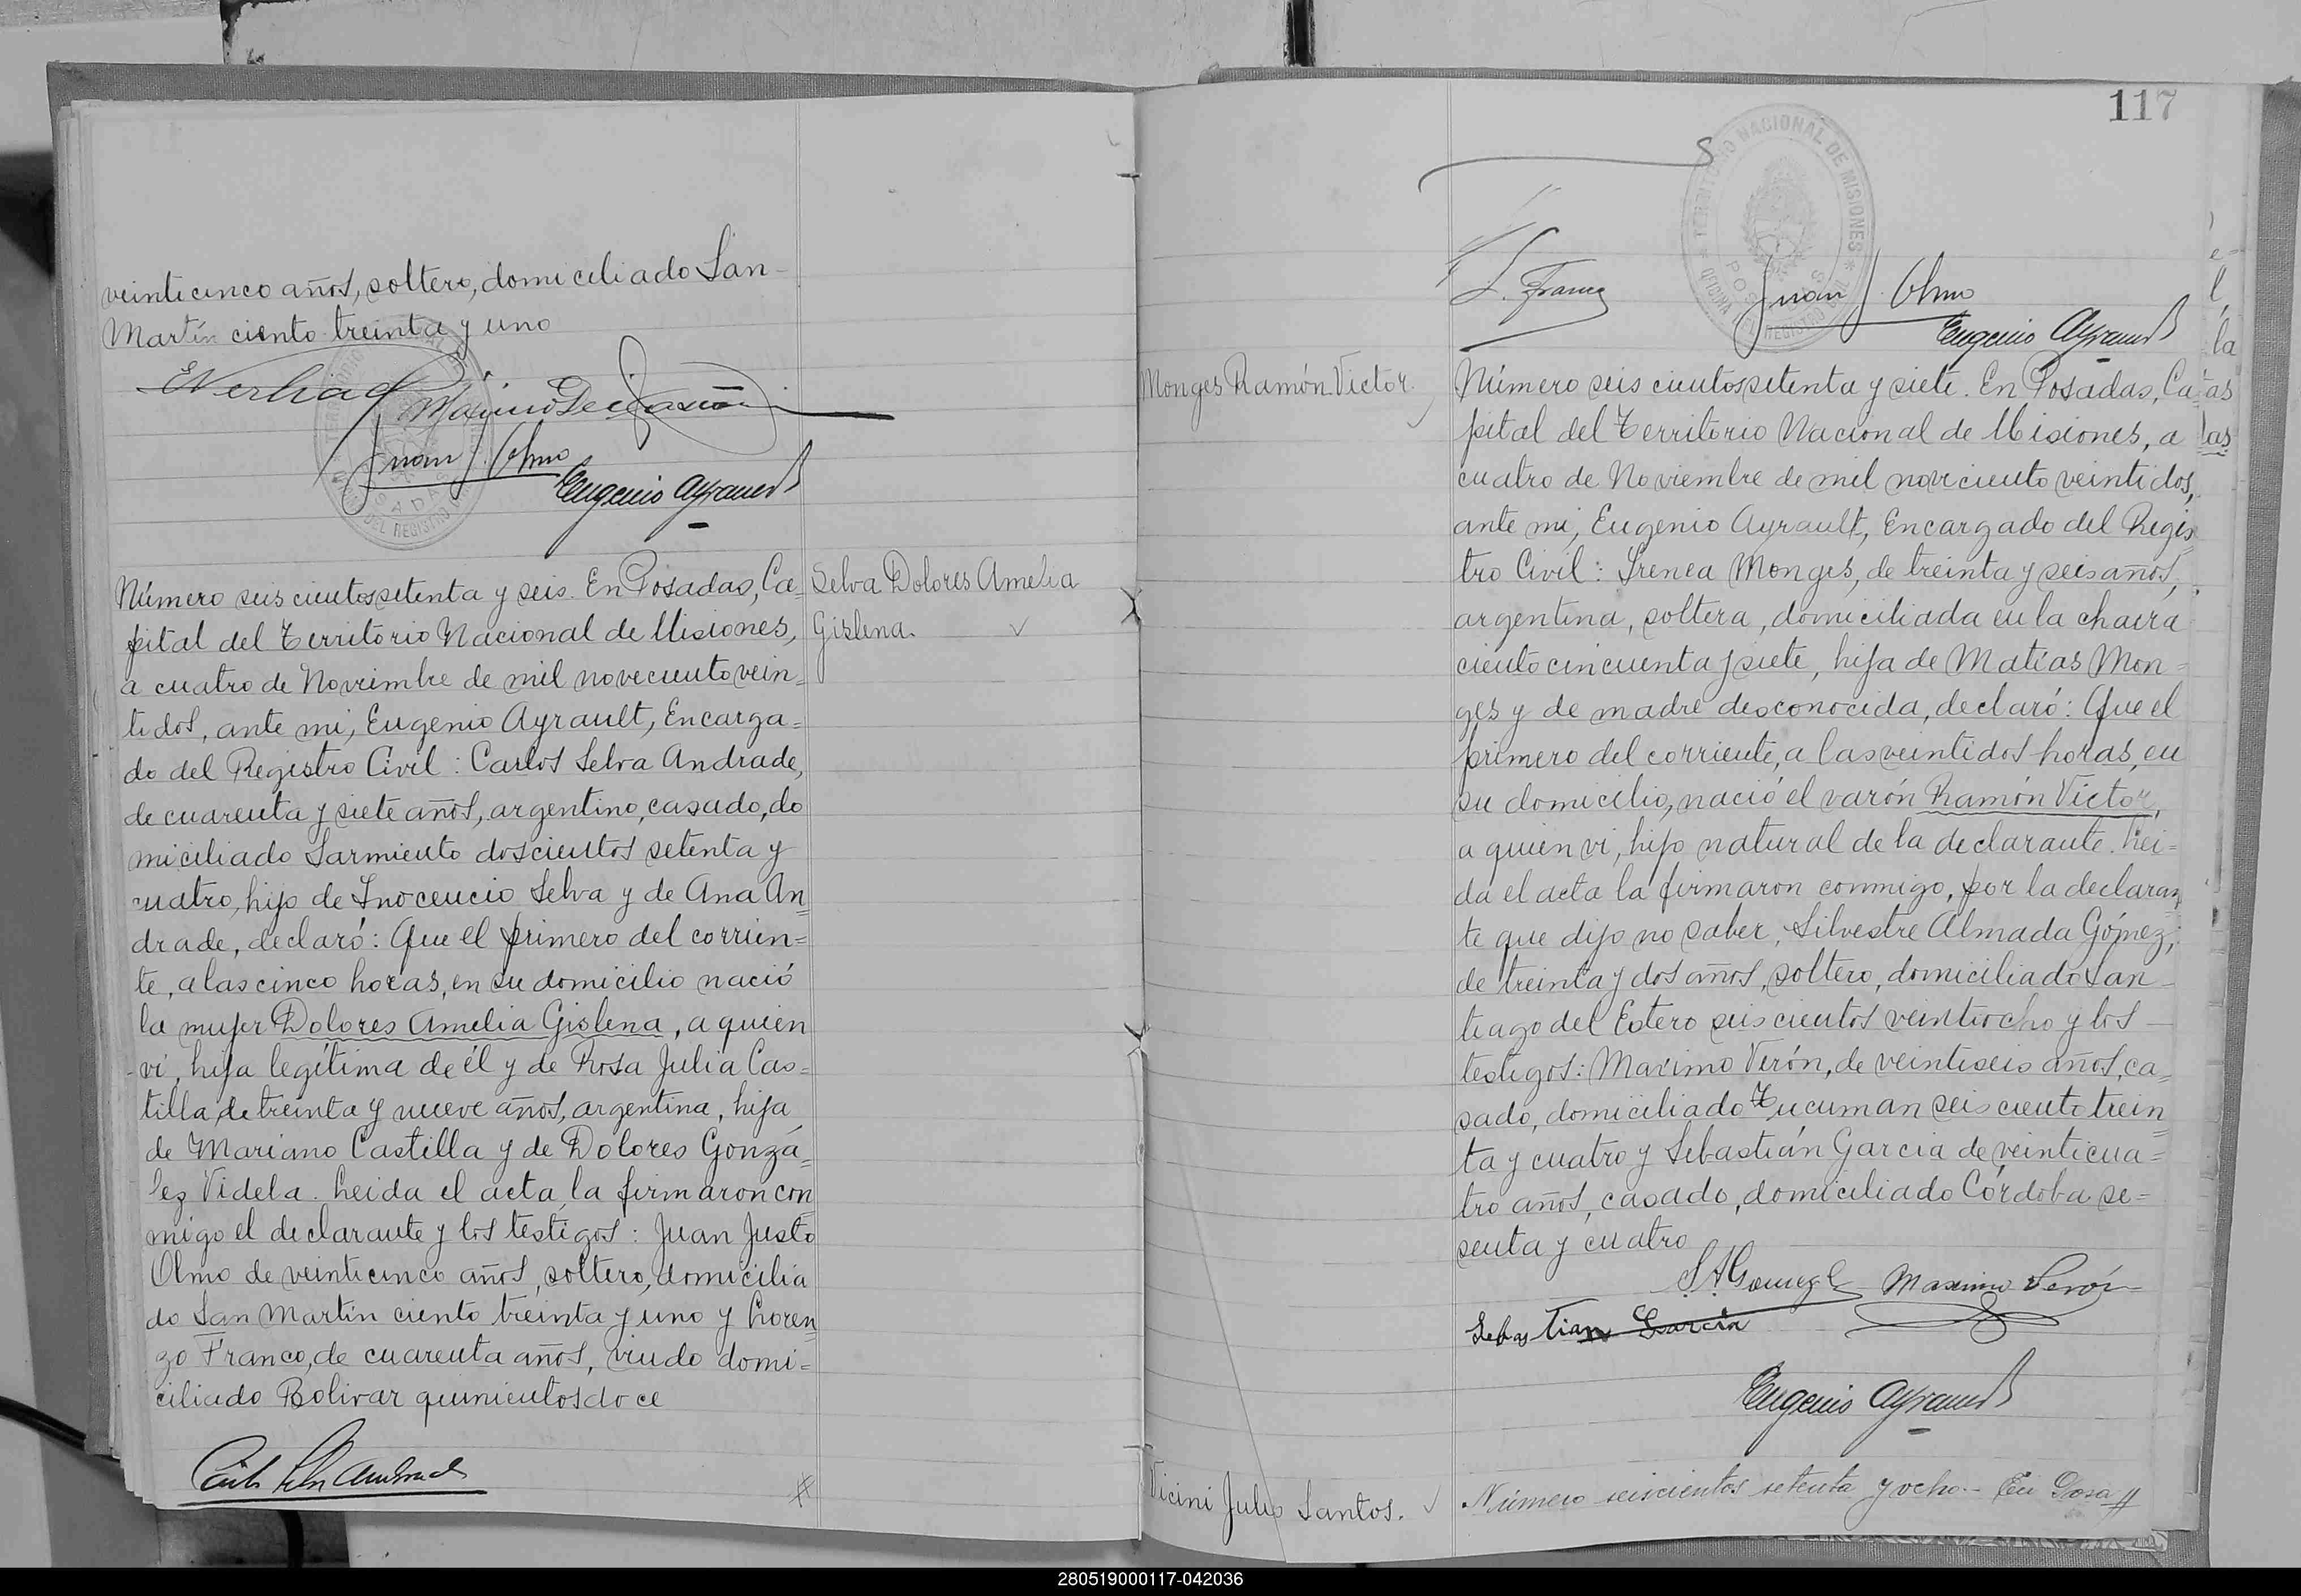 veinticinco años, soltero, domiciliado San
Martín ciento treinta y uno
Juan J. Olmo
Eugenio Ayrault
Número seiscientos setenta y seis. En Posadas, Ca=
pital del Territorio Nacional de Misiones,
a cuatro de Noviembre de mil novecientos vein=
tidos, ante mi, Eugenio Ayrault, Encarga=
do del Registro Civil: Carlos Selva Andrade,
de cuarenta y siete años, argentino, casado, do
miciliado Sarmiento doscientos setenta y
cuatro, hijo de Inocencio Selva y de Ana An=
drade, declaró: Que el primero del corrien=
te, a las cinco horas, en su domicilio nació
la mujer Dolores Amelia Gislena, a quien
vi, hija legítima de él y de Rosa Julia Cas=
tilla, de treinta y nueve años, argentina, hija
de Mariano Castilla y de Dolores Gonzá=
lez Videla. Leida el acta, la firmaron con
migo el declarante y los testigos: Juan Justo
Olmo de veinticinco años, soltero, domicilia
do San Martín ciento treinta y uno y Loren=
zo Franco, de cuarenta años, viudo domi=
ciliado Bolivar quinientos doce
Selva Dolores Amelia
Gislena.
117
TERRITORIO NACIONAL DE MISIONES
OFICINA DEL REGISTRO CIVIL
POSADAS
L. Franco
Juan J. Olmo
Eugenio Ayrault
Monges Ramón Victor
Número seis cientos setenta y siete. En Posadas, Ca=
pital del Territorio Nacional de Misiones, a
cuatro de Noviembre de mil noveciento veintidos,
ante mi, Eugenio Ayrault, Encargado del Regis
tro Civil: Irenea Monges, de treinta y seis años,
argentina, soltera, domiciliada en la chacra
ciento cincuenta y siete, hija de Matías Mon=
ges y de madre desconocida, declaró: Que el
primero del corriente, a las veintidos horas, en
su domicilio, nació el varón Ramón Victor,
a quien vi, hijo natural de la declarante. Lei=
da el acta la firmaron conmigo, por la declaran
te que dijo no saber, Silvestre Almada Gómez,
de treinta y dos años, soltero, domiciliado San
tiago del Estero seiscientos veintiocho y los
testigos: Maximo Verón, de veintiseis años, ca=
sado, domiciliado Tucuman seis ciento trein
ta y cuatro y Sebastián Garcia de veinticua=
tro años, casado, domiciliado Córdoba se=
senta y cuatro
S. A. Gomez
Maximo Verón
Sebastian Garcia
Eugenio Ayrault
Vicini Julio Santos.
Número seiscientos setenta y ocho.- En Posa
280519000117-042036